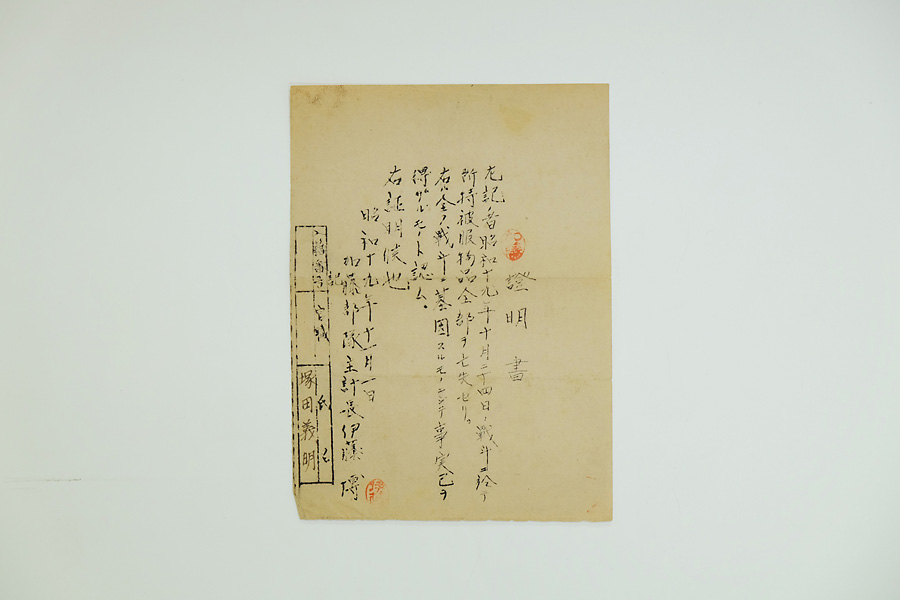 證明書
左記ノ者昭和十九年十月二十四日ノ戦斗ニ於テ
所持被服物品全部ヲ亡失セリ。
右ハ全ク戦斗ニ基因スルモノニシテ事実已ヲ
得ザルモノト認ム。
右証明候也
昭和十九年十一月一日
加藤部隊主計長伊藤博
記
官職
氏名
塚田義明